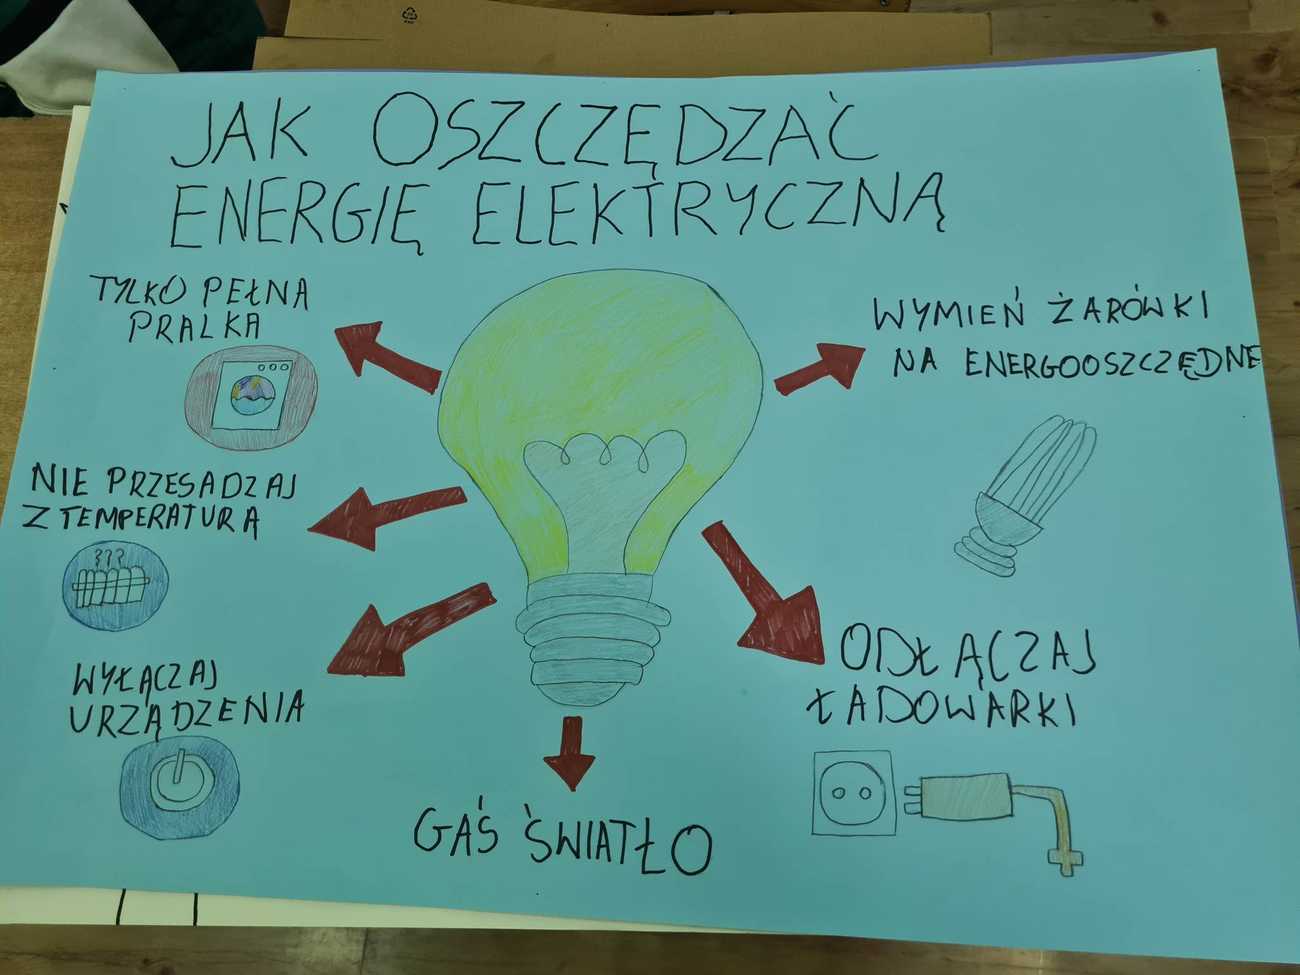 JAK OSZCZĘDZAĆ
ENERGIĘ ELEKTRYCZNĄ
TYLKO PEŁNA
PRALKA
WYMIEŃ ŻARÓWKI
NA ENERGOOSZCZĘDNE
NIE PRZESADZAJ
Z TEMPERATURĄ
???
WYŁĄCZAJ
URZĄDZENIA
ODŁĄCZAJ
ŁADOWARKI
GAŚ ŚWIATŁO